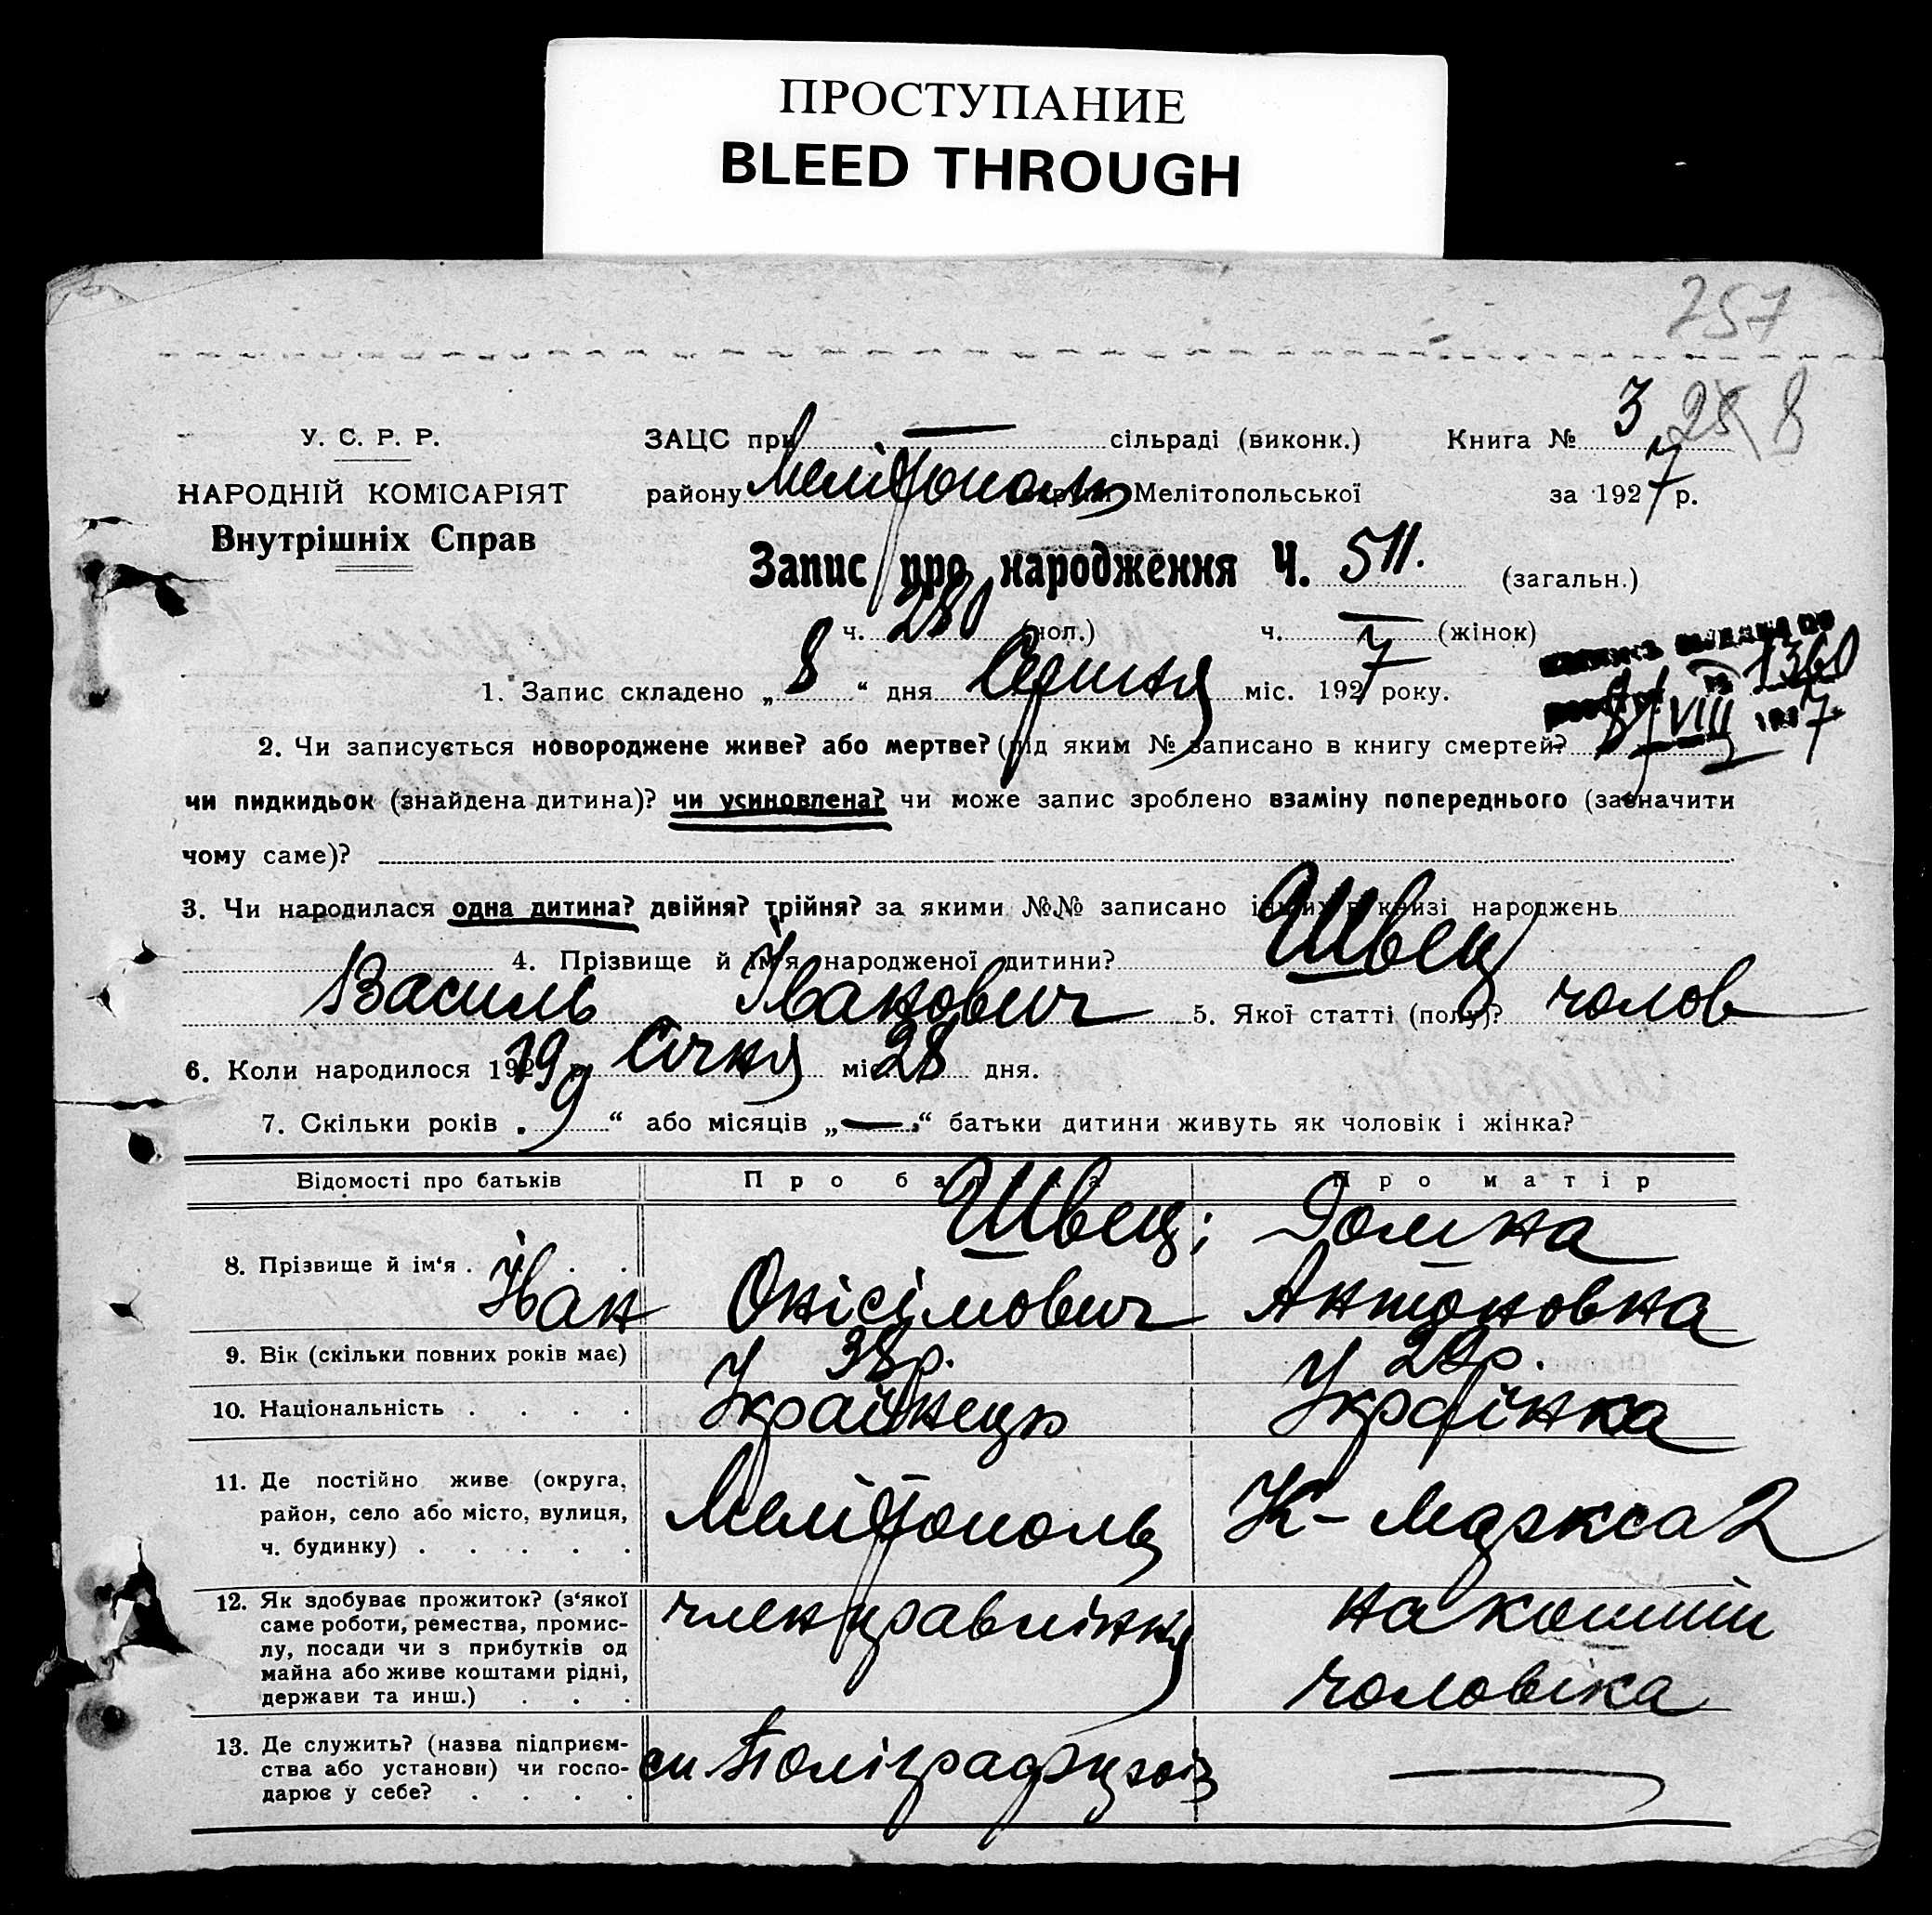 ПРОСТУПАНИЕ
BLEED THROUGH
257
У. С. Р. Р.
НАРОДНІЙ КОМІСАРІЯТ
Внутрішніх Справ
ЗАЦС при — сільраді (виконк.) Книга № 3 28 8
району Мелітополь округи Мелітопольської за 1927 р.
Запис про народження Ч. 511. (загальн.)
ч. 280 (чол.) ч. — (жінок)
1. Запис складено „ 8 “ дня Серпня міс. 1927 року.
1360
8/VIII 1927
2. Чи записується новороджене живе? або мертве? (під яким № записано в книгу смертей?
чи пидкидьок (знайдена дитина)? чи усиновлена? чи може запис зроблено взаміну попереднього (зазначити
чому саме)?
3. Чи народилася одна дитина? двійня? трійня? за якими №№ записано інших в книзі народжень
4. Прізвище й ім'я народженої дитини? Швець
Василь Іванович 5. Якої статті (полу)? чолов
6. Коли народилося 1919 р. Січня міс. 28 дня.
7. Скільки років „ 9 “ або місяців „ — “ батьки дитини живуть як чоловік і жінка?
Відомості про батьків Про батька Про матір
8. Прізвище й ім'я . Швець; Домна
Іван Онісімович Антоновна
9. Вік (скільки повних років має) 38 р. 29 р.
10. Національність . . . . Українець Українка
11. Де постійно живе (округа,
район, село або місто, вулиця,
ч. будинку) . . . . .
Мелітополь К-Маркса 2
12. Як здобуває прожиток? (з'якої
саме роботи, ремества, промис-
лу, посади чи з прибутків од
майна або живе коштами рідні,
держави та инш.) . . .
член правління на кошти
чоловіка
13. Де служить? (назва підприєм-
ства або установи) чи госпо-
дарює у себе? . . . .
Поліграфсоюз —